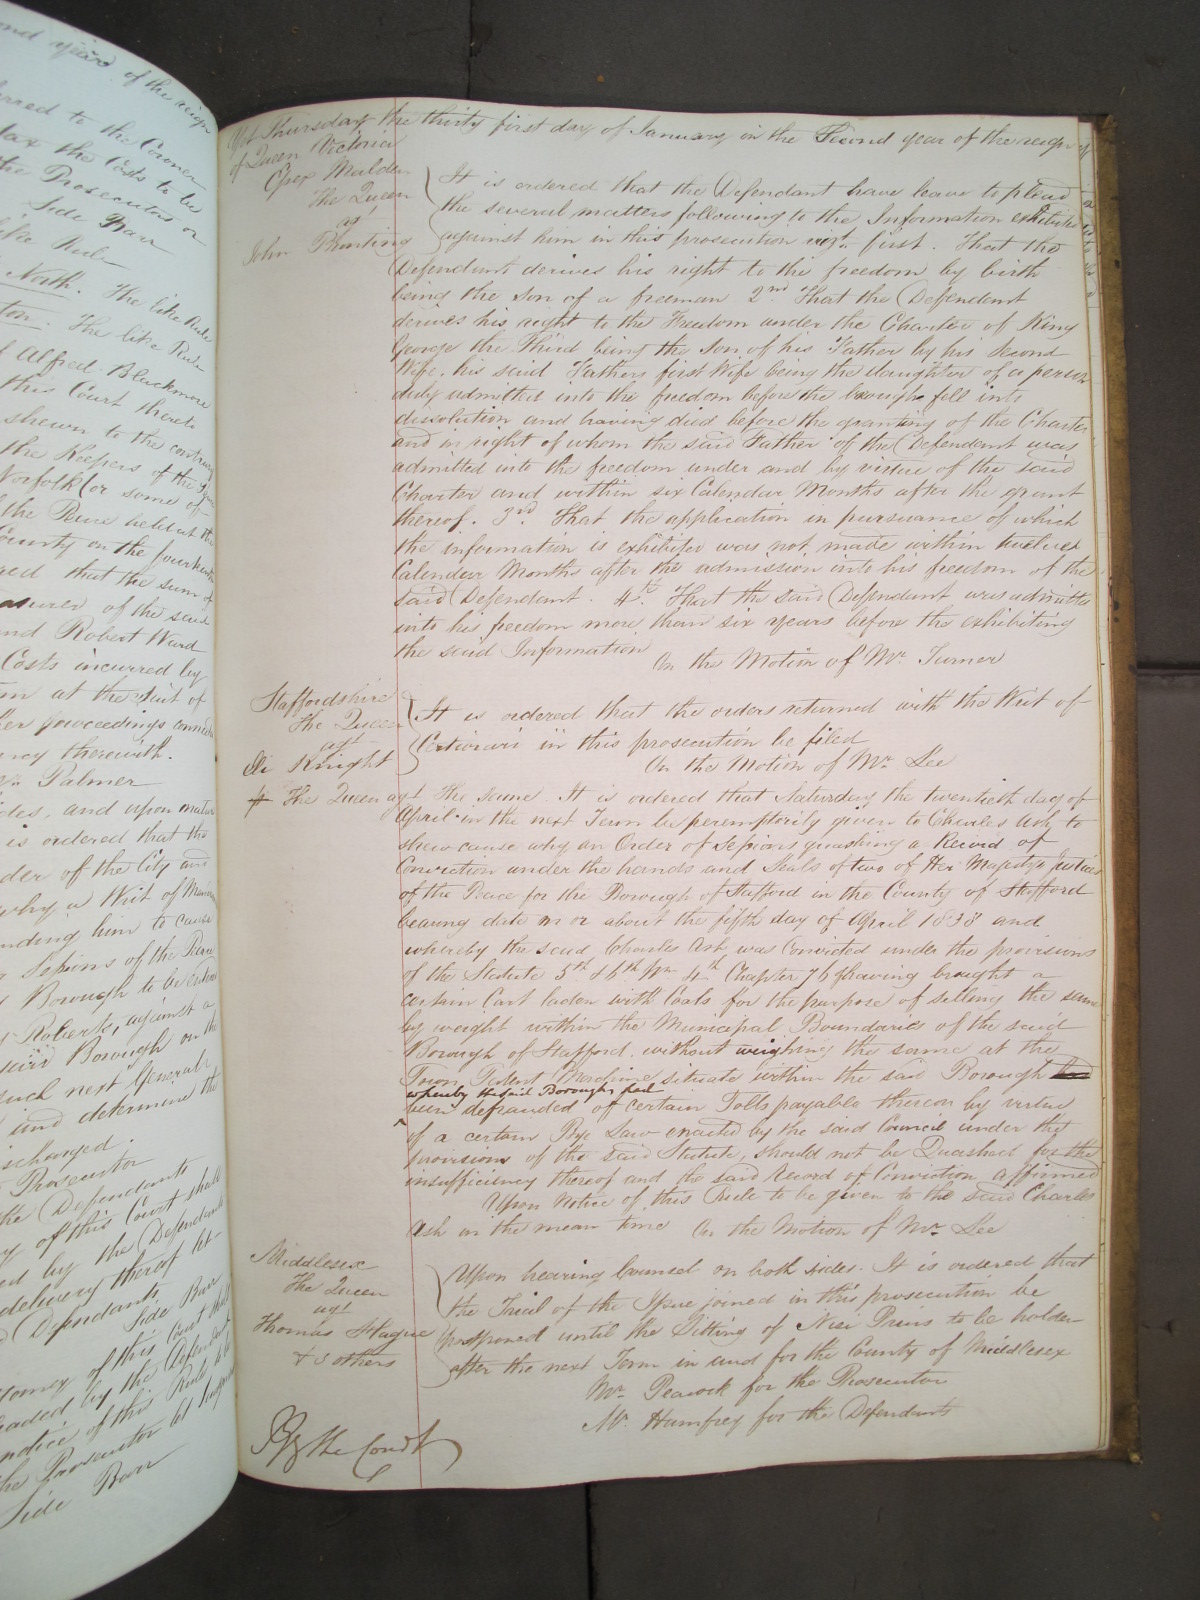 ond year of the reign
ferred to the Coroner
tax the Costs to be
the Prosecutors or
Side Barr
like Rule
North. The like Rule
ton. The like Rule
Alfred Blackmore
this Court thereto
shewn to the contrary
the Keepers of the
Norfolk (or some of
the Peace held at the
County on the fourteenth
that the sum of
asurer of the said
and Robert Ward
Costs incurred by
at the suit of
proceedings
therewith.
Palmer
ides, and upon
is ordered that the
der of the City and
why a Writ of
nding him to cause
Sessions of the Peace
Borough to be
Roberts, against a
said Borough on the
such next General
and determine the
ischarged.
Prosecutor
the Defendants
of this Court shall
ed by the Defendants
delivery thereof
Defendants
Side Barr
of this Court shall
by the
notice of this Rule to be
the Prosecutor
Side Barr
Yet Thursday the thirty first day of January in the Second year of the reign
of Queen Victoria
Essex Maldon
The Queen
agt
John Bunting
It is ordered that the Defendant have leave to plead
the several matters following to the Information exhibited
against him in this prosecution vizt. first. That the
Defendant derives his right to the freedom by birth
being the son of a freeman 2nd. That the Defendant
derives his right to the Freedom under the Charter of King
George the Third being the Son of his Father by his Second
Wife, his said Fathers first Wife being the daughter of a person
duly admitted into the freedom before the borough fell into
dissolution and having died before the granting of the Charter
and in right of whom the said Father of the Defendant was
admitted into the freedom under and by virtue of the said
Charter and within six Calendar Months after the grant
thereof. 3rd. That the application in pursuance of which
the information is exhibited was not made within twelve
Calendar Months after the admission into his freedom of the
said Defendant. 4th. That the said Defendant was admitted
into his freedom more than six years before the exhibiting
the said Information
On the Motion of Mr. Turner
Staffordshire
The Queen
agt
Knight
It is ordered that the orders returned with the Writ of
Certiorari in this prosecution be filed
On the Motion of Mr. Lee
The Queen agt The Same. It is ordered that Saturday the twentieth day of
April in the next Term be peremptorily given to Charles Ash to
shew cause why an Order of Sessions quashing a Record of
Conviction under the hands and Seals of two of Her Majestys Justices
of the Peace for the Borough of Stafford in the County of Stafford
bearing date on or about the fifth day of April 1838 and
whereby the said Charles Ash was Convicted under the provisions
of the Statute 5th & 6th Wm 4th Chapter 76 of having brought a
certain Cart laden with Coals for the purpose of selling the same
by weight within the Municipal Boundaries of the said
Borough of Stafford, without weighing the same at the
Town Machine situate within the said Borough
whereby the said Borough had
been defrauded of certain Tolls payable thereon by virtue
of a certain Bye Law enacted by the said Council under the
provisions of the said Statute, should not be Quashed for the
insufficiency thereof and the said Record of Conviction affirmed
Upon Notice of this Rule to be given to the said Charles
Ash in the mean time On the Motion of Mr. Lee
Middlesex
The Queen
agt
Thomas Hague
& 3 others
Upon hearing Counsel on both sides. It is ordered that
the Trial of the Issue joined in this prosecution be
postponed until the Sitting of Nisi Prius to be holden
after the next Term in and for the County of Middlesex
Mr. Peacock for the Prosecutor
Mr. Humfrey for the Defendants
By the Court